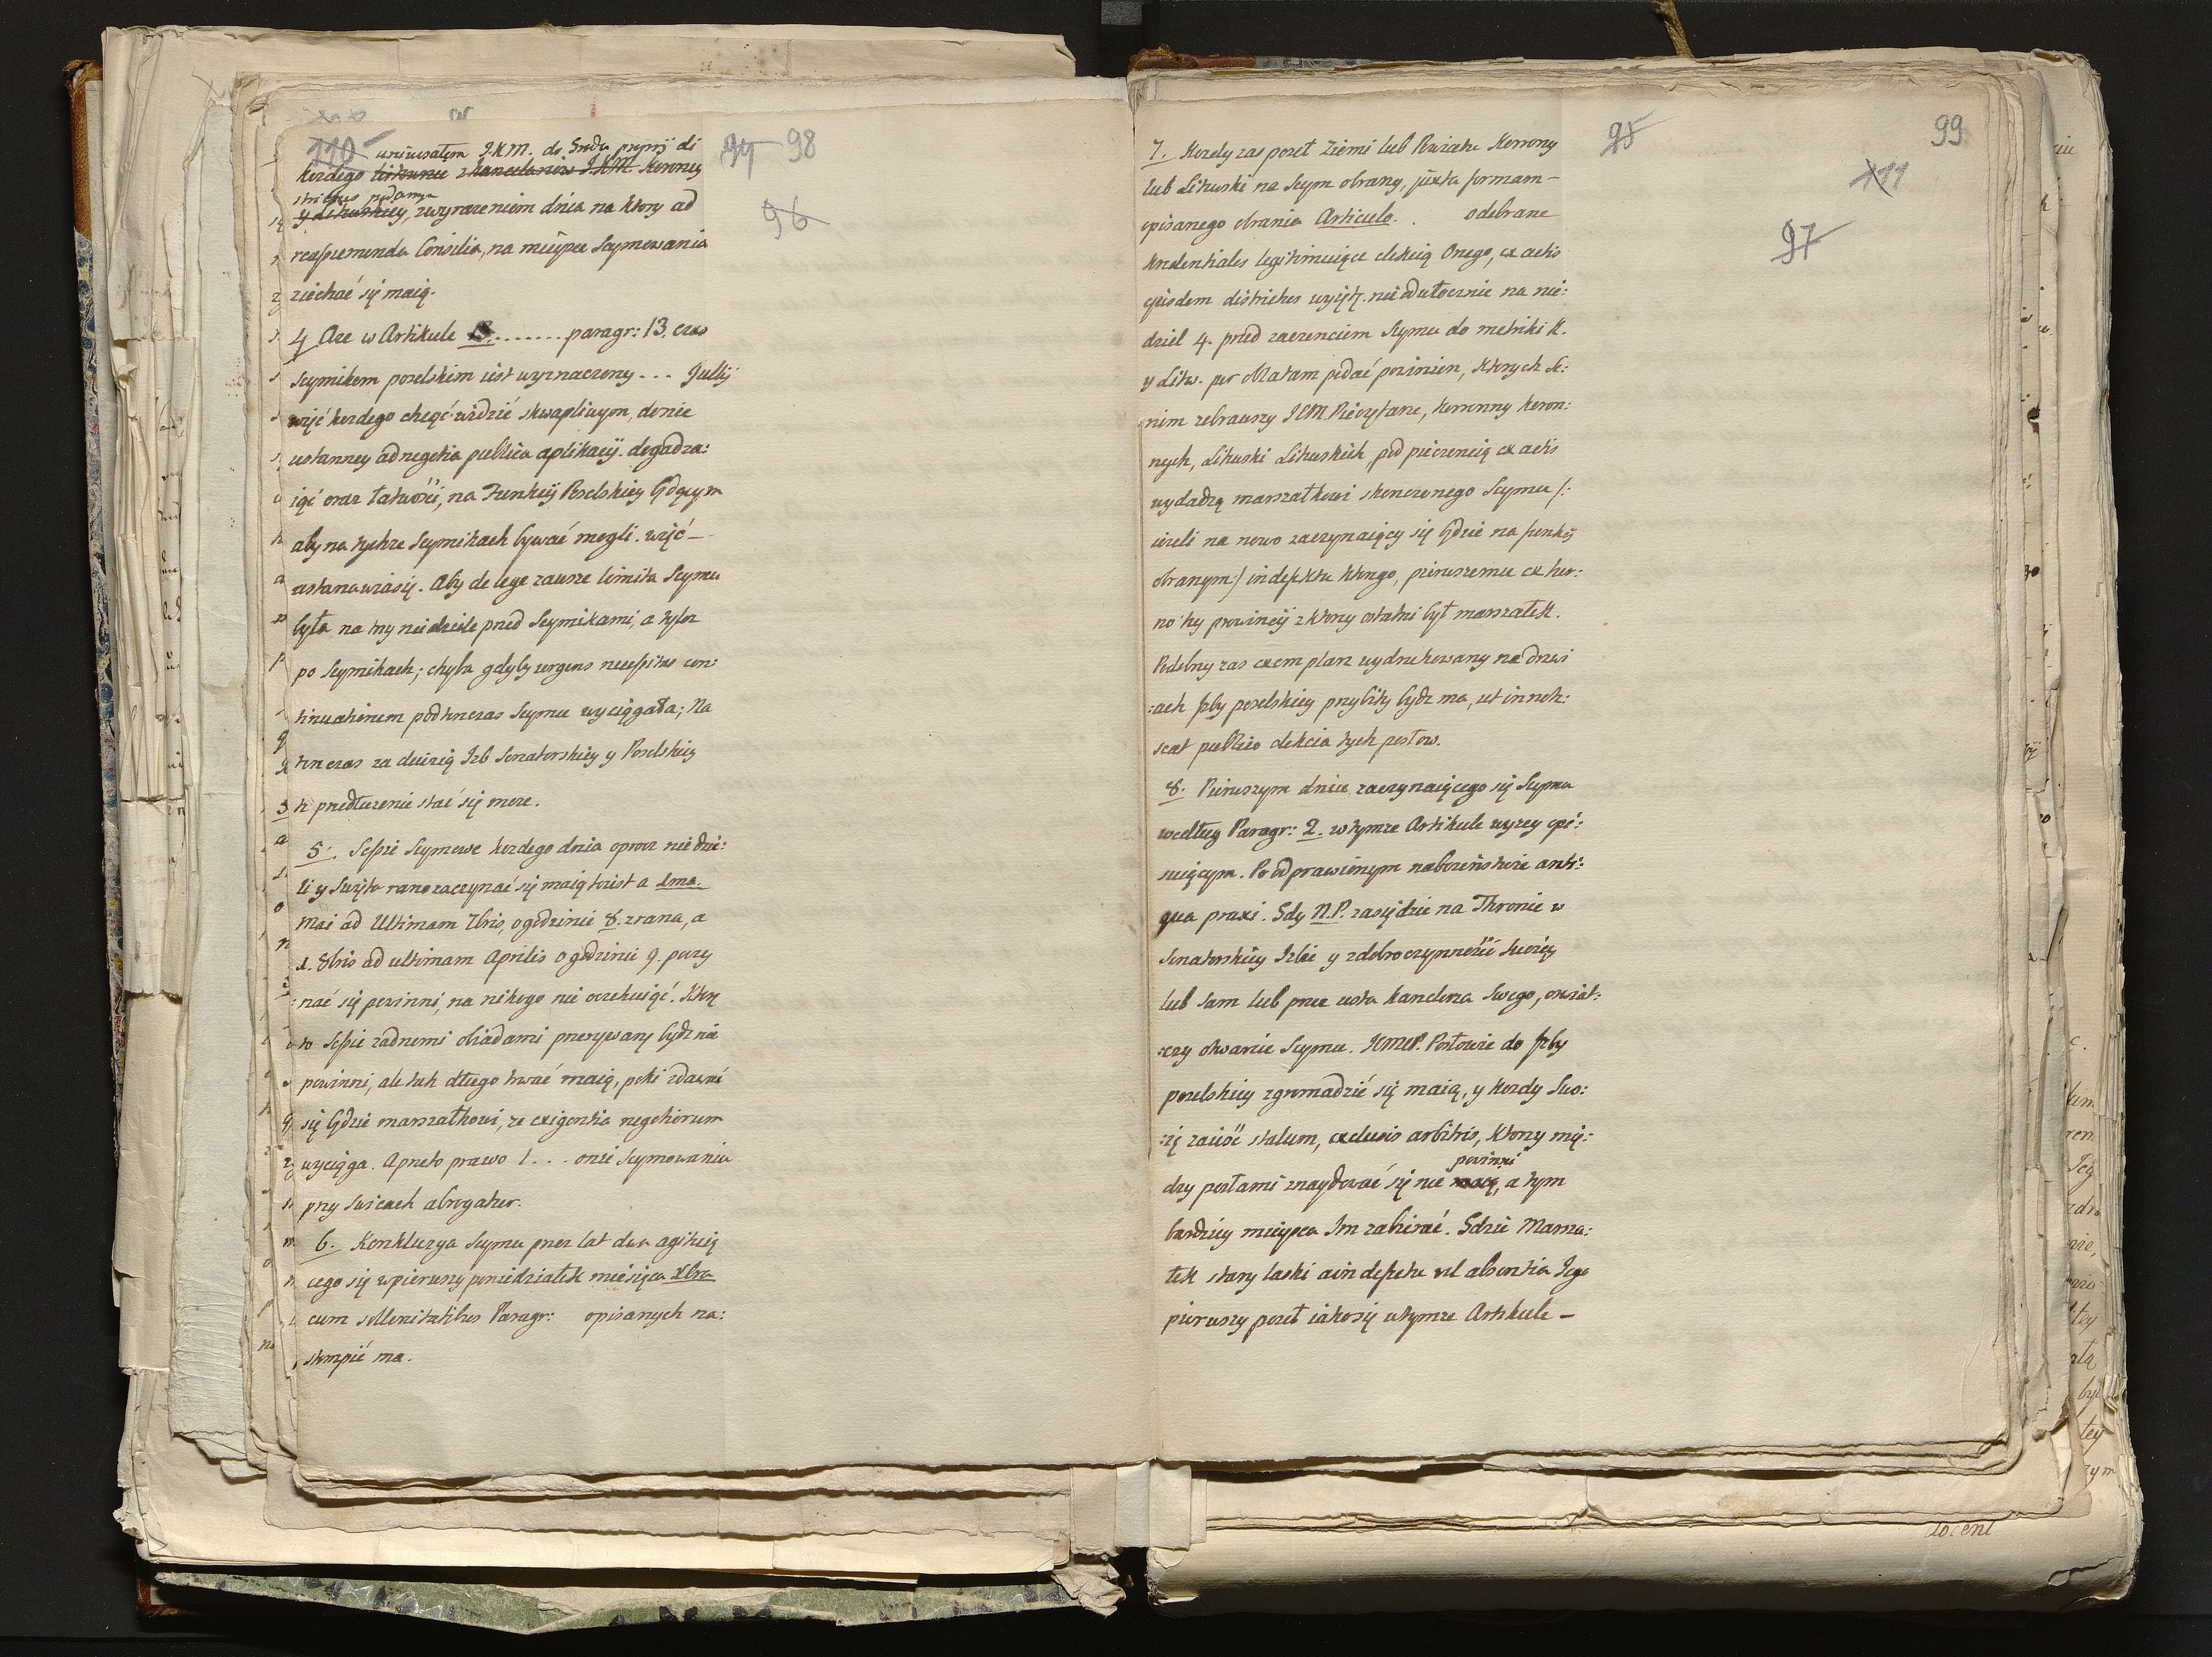 110 94 98
uniwersałem J.K.M. do Grodu
każdego Kancelariow J.K.M. Koronney
strictus podanym
y Litewskiey, z wyrażeniem dnia na ktory ad
96
reassumenda Consilia, na mieysce Seymowania
ziechać się maią.
4 Aże w Artikule ........ paragr: 13. czas
Seymikom poselskim iest wyznaczony ... Julij
więc kożdego chcąc widzieć skwapliwym, do nie
ustanney ad negotia publica aplikacij. dogadza:
iąc oraz łatwości, na Funkcij Poselskiey będącym
aby na tychże Seymikach bywać mogli. więc —
ustanawia się. Aby de lege zawsze limita Seymu
była na trzy niedziele przed Seymikami, a tyleż
po Seymikach; chyba gdyby urgens necessitas con:
tinuationem podtenczas Seymu wyciągała; Na
tenczas za decizią Izb Senatorskiey y Poselskiey
te przedłużenie stać się może.
5. Sessie Seymowe kożdego dnia oprocz niedzie:
li y Swięta rano zaczynać się maią to iest a 1ma
Mai ad Ultimam 7bris, o godzinie 8. z rana, a
1. 8bris ad ultimam Aprilis o godzinie 9. poczy
:nać się powinni, na nikogo nie oczekuiąc. Ktore
to Sessie żadnemi obiadami przerywany bydź nie
powinni, ale tak długo trwać maią, poki zdawać
się będzie marszałkowi, że exigentia negotiorum
wyciąga. A przeto prawo 1... onże Seymowania
przy swicach abrogatur.
6. Konkluzya Seymu przez lat dwa agituią
cego się w pierwszy poniedziałek miesiąca Xbra
cum sollenitatibus Paragr: opisanych na:
stompić ma.
95 99
111
97
7. Kożdy zas poseł Ziemi lub Powiatu Koronny
lub Litewski na Seym obrany, juxta formam —
opisanego obrania Articulo . . odebrane
Kredentiales legitimuiące elekcią Onego, ex actis
ejusdem districtus wyięte nieodwłocznie na nie:
dziel 4. przed zaczenciem Seymu do metriki K.
y Litw. per oblatam podać powinien, Ktorych Se:
nim zebrawszy JEM. Pieczętarze, Koronny Koron:
nych, Litewski Litewskich, pod pieczencią ex actis
wydadzą marszałkowi skonczonego Seymu /:
ieżeli na nowo zaczynaiący się będzie na funkcij
obranym / in defectu Ktorego, pierwszemu ex ter:
no tey prowincij z ktory ostatni był marszałek.
Podobny zas exemplarz wydrukowany na drzwi
:ach Izby poselskiey przybity bydź ma, ut innote:
scat publico elekcia tych posłow.
8. Pierwszym dniu zaczynaiącego się Seymu
według Paragr: 2. w tymże Artikule wyżey opi:
suiącym. Po odprawionym nabożeństwie anti:
qua praxi. Gdy N.P. zasiędzie na Thronie w
Senatorskiey Izbie y z dobroczynności Swoiey
lub sam lub przez usta kanclerza Swego, oswiat:
:czy otwarcie Seymu. JMCP. Posłowie do Izby
poselskiey zgromadzić się maią, y kożdy Swo:
:ię zaiąść stalum, exclusis arbitris, Ktory mię:
powinni
dzy posłami znaydować się nie maią, a tym
bardziey mieysca Im zabirać. Gdzie Marsza:
łek stary laski a in defectu vel absentia Jego
pierwszy poseł iako się w tymże Artikule —